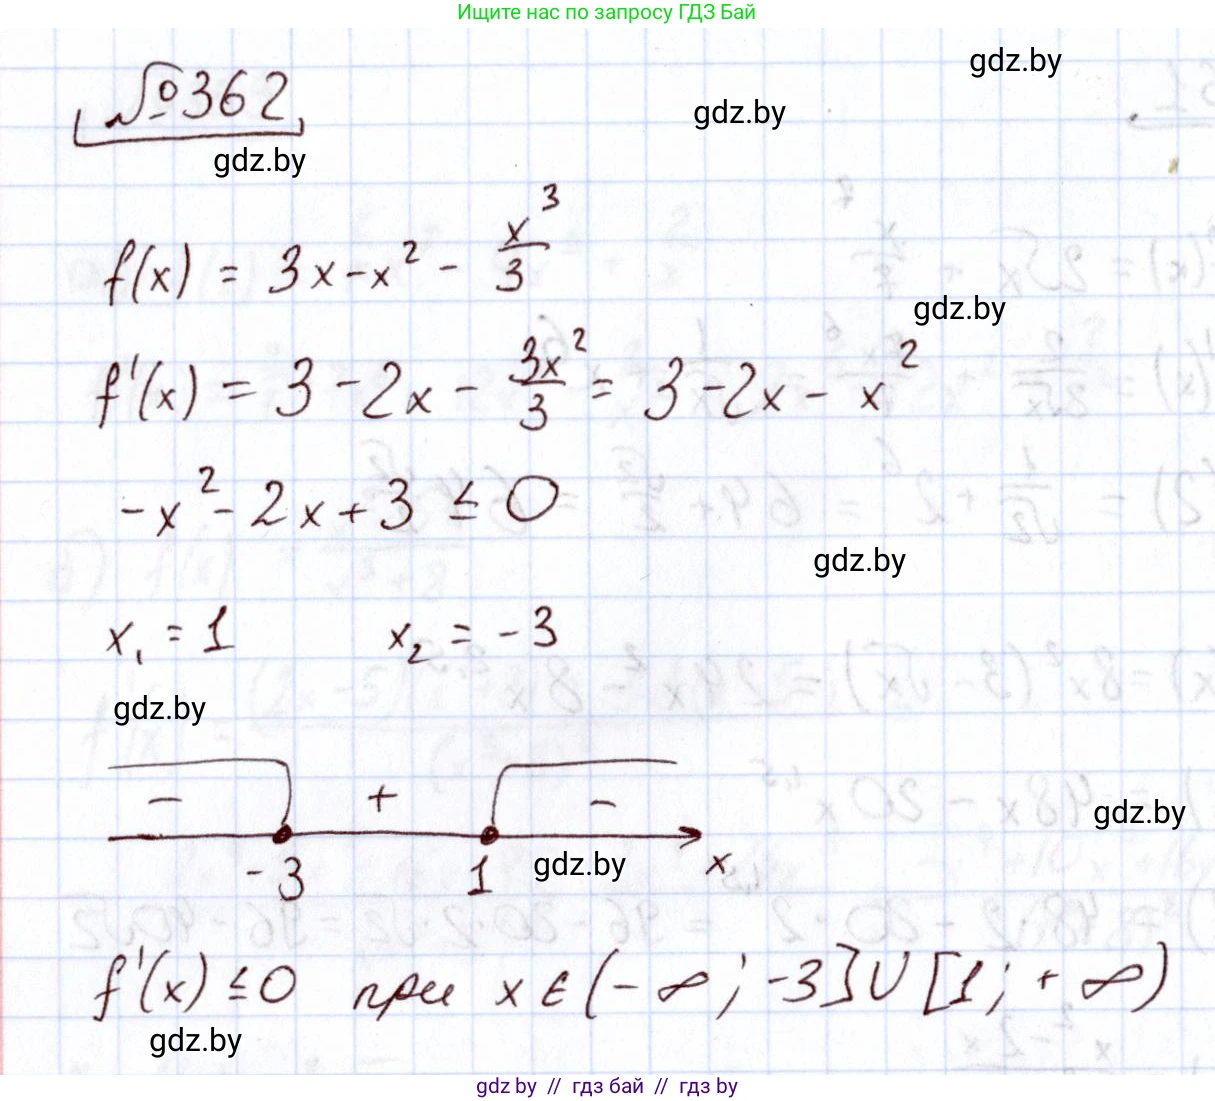 Ищите нас по запросу ГДЗ Бай
gdz.by
gdz.by
№362
gdz.by
f(x) = 3x - x² - x³/3
gdz.by
f'(x) = 3 - 2x - 3x²/3 = 3 - 2x - x²
-x² - 2x + 3 ≤ 0
gdz.by
x₁ = 1 x₂ = -3
gdz.by
- + -
gdz.by
-3 1 gdz.by x
f'(x) ≤ 0 при x ∈ (-∞; -3] ∪ [1; +∞)
gdz.by
gdz.by // гдз бай // гдз by